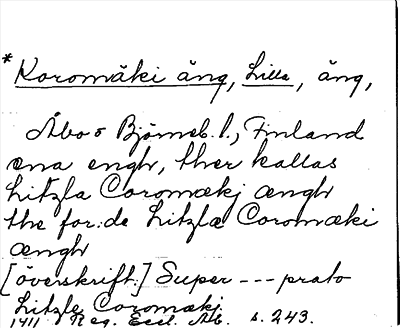 *Koromäki äng, Lilla, äng,
Åbo o Björneb. l., Finland
ena engh, ther kallas
Litzla Coromækj ængh
the for:de Litzlæ Coromæki
ængh
[överskrift:] Super --- prato
Litzle Coromækj
1411 Reg. Eccl. Ab. s. 243.